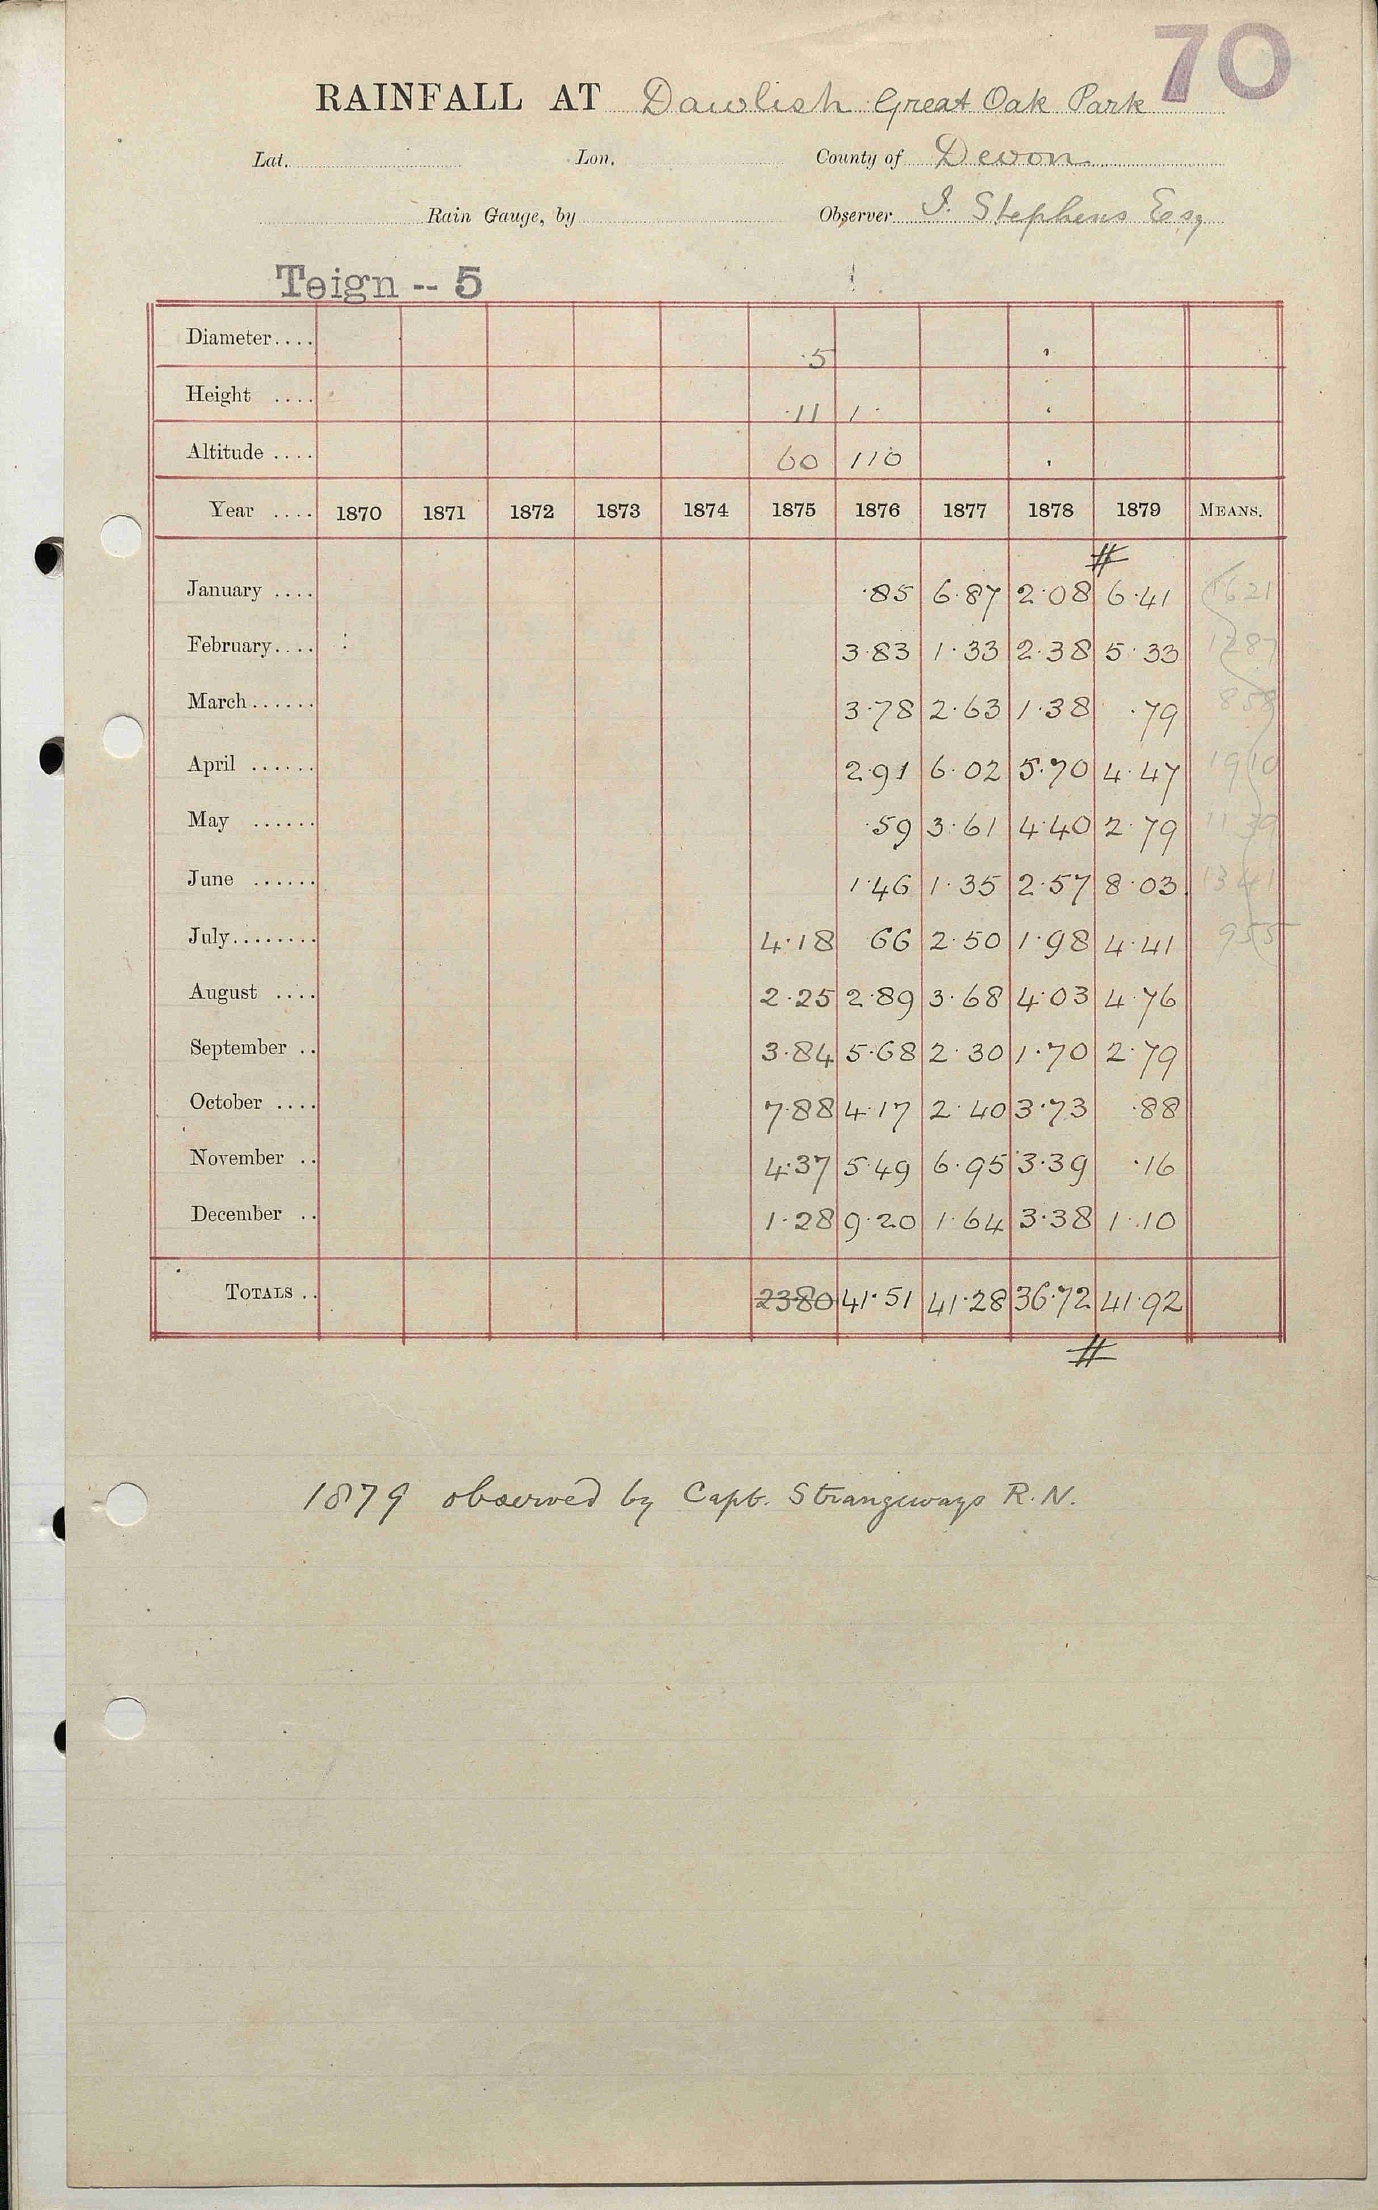 70
RAINFALL AT Dawlish Great Oak Park
Lat. Lon. County of Devon
Rain Gauge, by Observer J. Stephens Esq
Teign -- 5
Diameter.... ·5
Height .... ·11 1·
Altitude .... 60 110
Year .... 1870 1871 1872 1873 1874 1875 1876 1877 1878 1879 MEANS.
#
January .... ·85 6·87 2·08 6·41 1621
February.... 3·83 1·33 2·38 5·33 1287
March...... 3·78 2·63 1·38 ·79 858
April ...... 2·91 6·02 5·70 4·47 1910
May ...... ·59 3·61 4·40 2·79 1139
June ...... 1·46 1·35 2·57 8·03 1341
July........ 4·18 66 2·50 1·98 4·41 955
August .... 2·25 2·89 3·68 4·03 4·76
September .. 3·84 5·68 2·30 1·70 2·79
October .... 7·88 4·17 2·40 3·73 ·88
November .. 4·37 5·49 6·95 3·39 ·16
December .. 1·28 9·20 1·64 3·38 1·10
TOTALS .. 2380 41·51 41·28 36·72 41·92
#
1879 observed by Capt. Strangeways R.N.